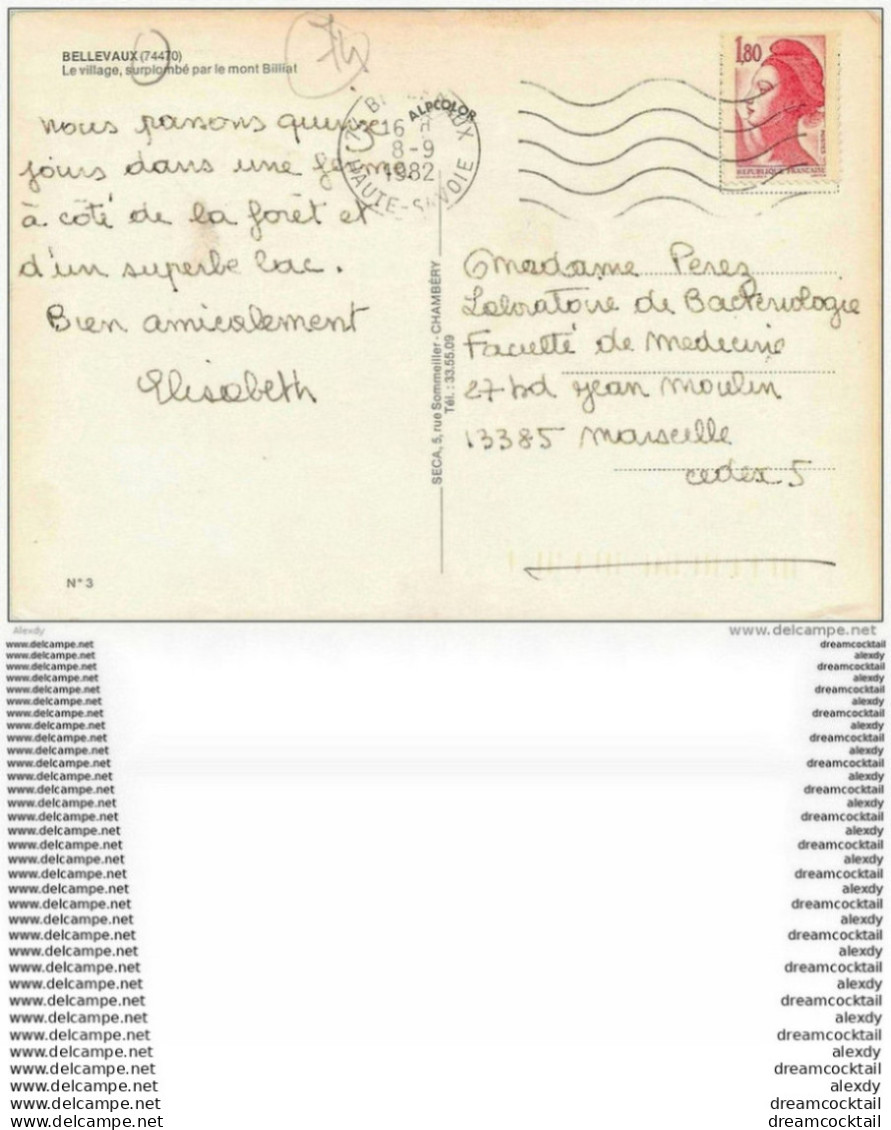 BELLEVAUX (74470)
Le village, surplombé par le mont Billiat
74
nous passons quinze
jours dans une ferme
à côté de la forêt et
d'un superbe lac.
Bien amicalement
Elisabeth
N° 3
ALPCOLOR
16 H
8-9
1982
HAUTE-SAVOIE
SECA, 5, rue Sommeiller - CHAMBÉRY
Tél. : 33.55.09
1,80
POSTES
REPUBLIQUE FRANÇAISE
Madame Perez
Laboratoire de Bactériologie
Faculté de Medecine
27 bd Jean Moulin
13385 Marseille
cedex 5
Alexdy
www.delcampe.net
www.delcampe.net dreamcocktail
www.delcampe.net alexdy
www.delcampe.net dreamcocktail
www.delcampe.net alexdy
www.delcampe.net dreamcocktail
www.delcampe.net alexdy
www.delcampe.net dreamcocktail
www.delcampe.net alexdy
www.delcampe.net dreamcocktail
www.delcampe.net alexdy
www.delcampe.net dreamcocktail
www.delcampe.net alexdy
www.delcampe.net dreamcocktail
www.delcampe.net alexdy
www.delcampe.net dreamcocktail
www.delcampe.net alexdy
www.delcampe.net dreamcocktail
www.delcampe.net alexdy
www.delcampe.net dreamcocktail
www.delcampe.net alexdy
www.delcampe.net dreamcocktail
www.delcampe.net alexdy
www.delcampe.net dreamcocktail
www.delcampe.net alexdy
www.delcampe.net dreamcocktail
www.delcampe.net alexdy
www.delcampe.net dreamcocktail
www.delcampe.net alexdy
www.delcampe.net dreamcocktail
www.delcampe.net alexdy
www.delcampe.net dreamcocktail
www.delcampe.net alexdy
www.delcampe.net dreamcocktail
www.delcampe.net dreamcocktail